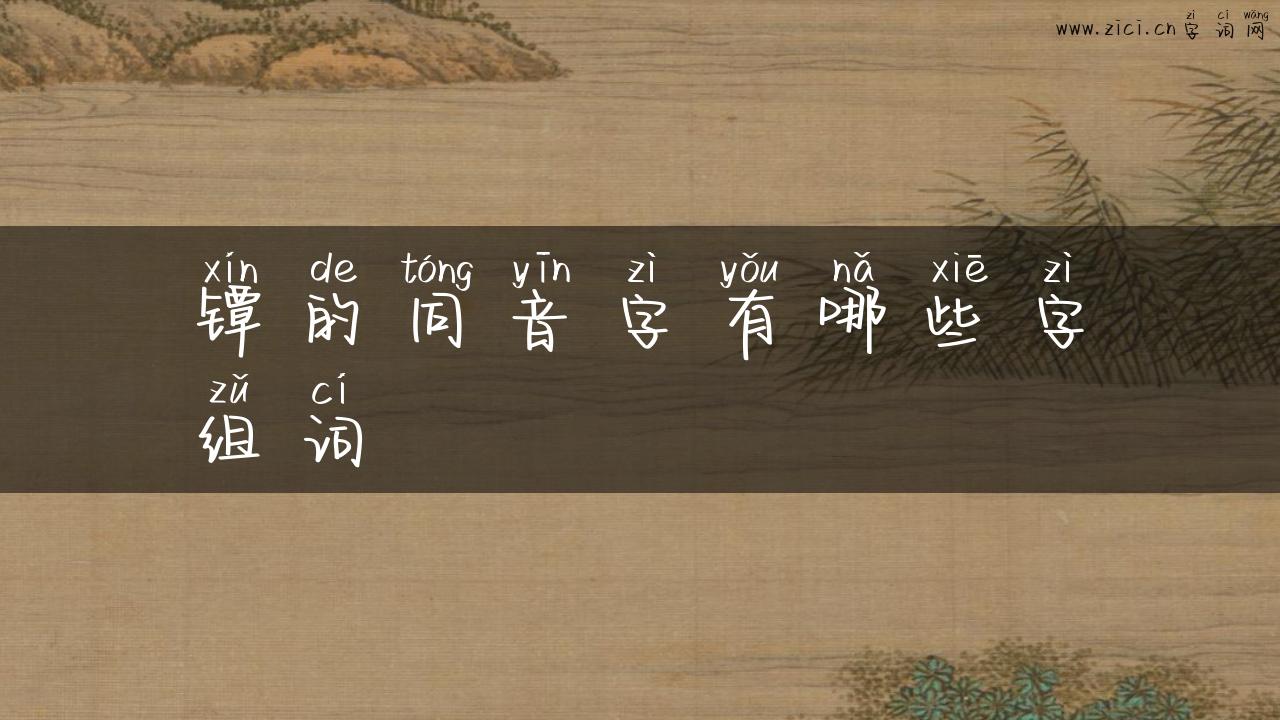 www.zici.cn字词网
zì cí wǎng
xín de tóng yīn zì yǒu nǎ xiē zì
镡的同音字有哪些字
zǔ cí
组词